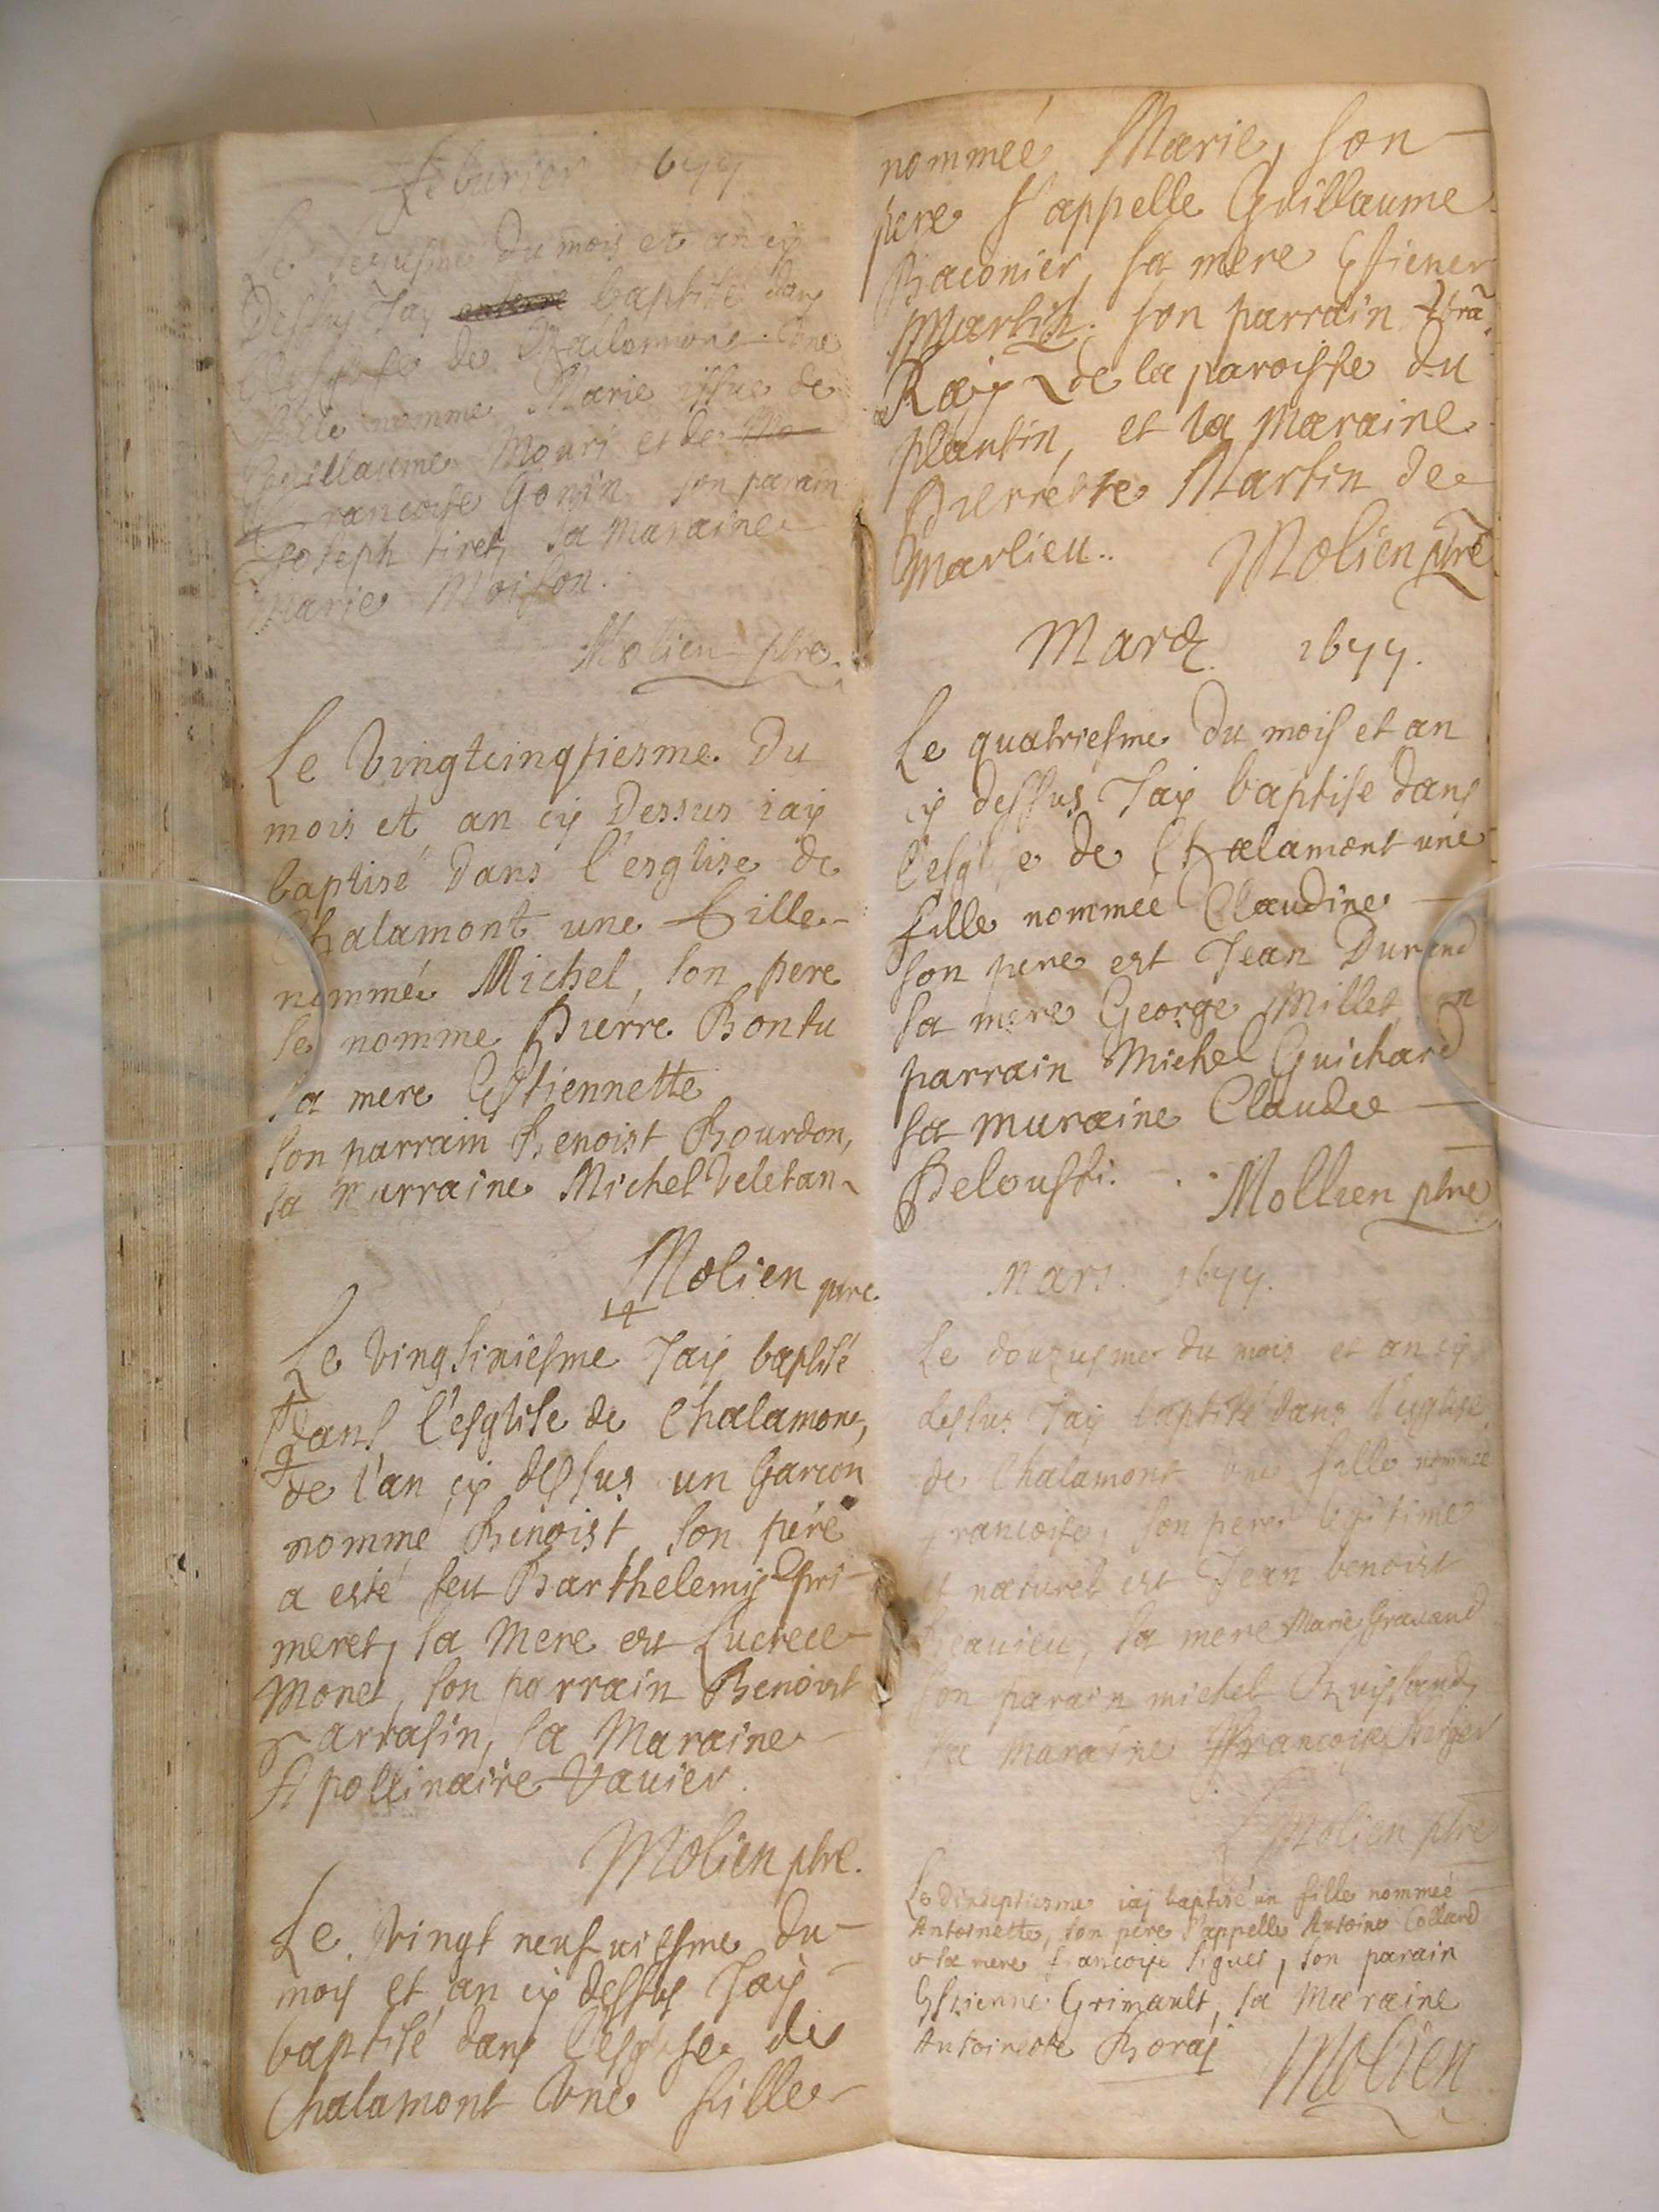 feburier 1677
Le seziesme du mois et an cy
Dessus Jay enterré baptisé dans
l'esglise de Chalamont Une
fille nomme Marie issue de
Guillaume Mouri et de Mo
francoise Gonin son parain
Joseph tiret, sa maraine
Marie Moison.
Molien ptre.
Le Vingtcinqfiesme Du
mois et an cy Dessus iay
baptisé Dans l'esglise de
Chalamont une fille
nommée Michel, son pere
se nomme Pierre Bontu
sa mere Estiennette
son parrain Benoist Bourdon,
sa Marraine Michel Veletan
Molien ptre
Le Vingsixiesme Jay baptisé
Dans l'esglise de Chalamont,
de l'an cy dessus un Garcon
nommé Benoist, son pére
a esté feu Barthélemy Pri-
meret, sa Mere est Lucrece
Monet, son parrain Benoist
Sarrasin, sa Maraine
Apollinaire Vauier.
Molien ptre.
Le Vingt neufuiesme du
mois et an cy dessus Jay
baptisé dans l'esglise de
Chalamont Une fille
nommée Marie, son
pere s'appelle Guillaume
Baconier, sa mere Estiener
Martin. son parrain frã.
Ray de la paroisse du
plantin, et la Maraine
Pierrette Martin de
Marlieu.. Molien ptre
Mars 1677.
Le quatriesme Du mois et an
cy dessus Jay baptise dans
l'esgl e de Chalamont une
fille nommée Claudine
son pere est Jean Durand
sa mere George Millet, on
parrain Michel Guichard
sa muraine Claude
Belousti. Mollien ptre
Mars. 1677.
Le douzuesme du mois et an cy
dessus Jay baptisé dans l'esglise
de Chalamont Une fille nommée
francoise, son pere legitime
et naturel est Jean benoist
beauieu, sa mere Marie Grauand
son parain michel
sa maraine francoise Berger
Molien ptre
Le dixseptiesme iay baptisé un fille nommée
Antoinette, son pere s'appelle Antoine Collard
et sa mere francoise Siguet, son parain
Estienne Grimault, sa Maraine
Antoinette Boraj
Molien